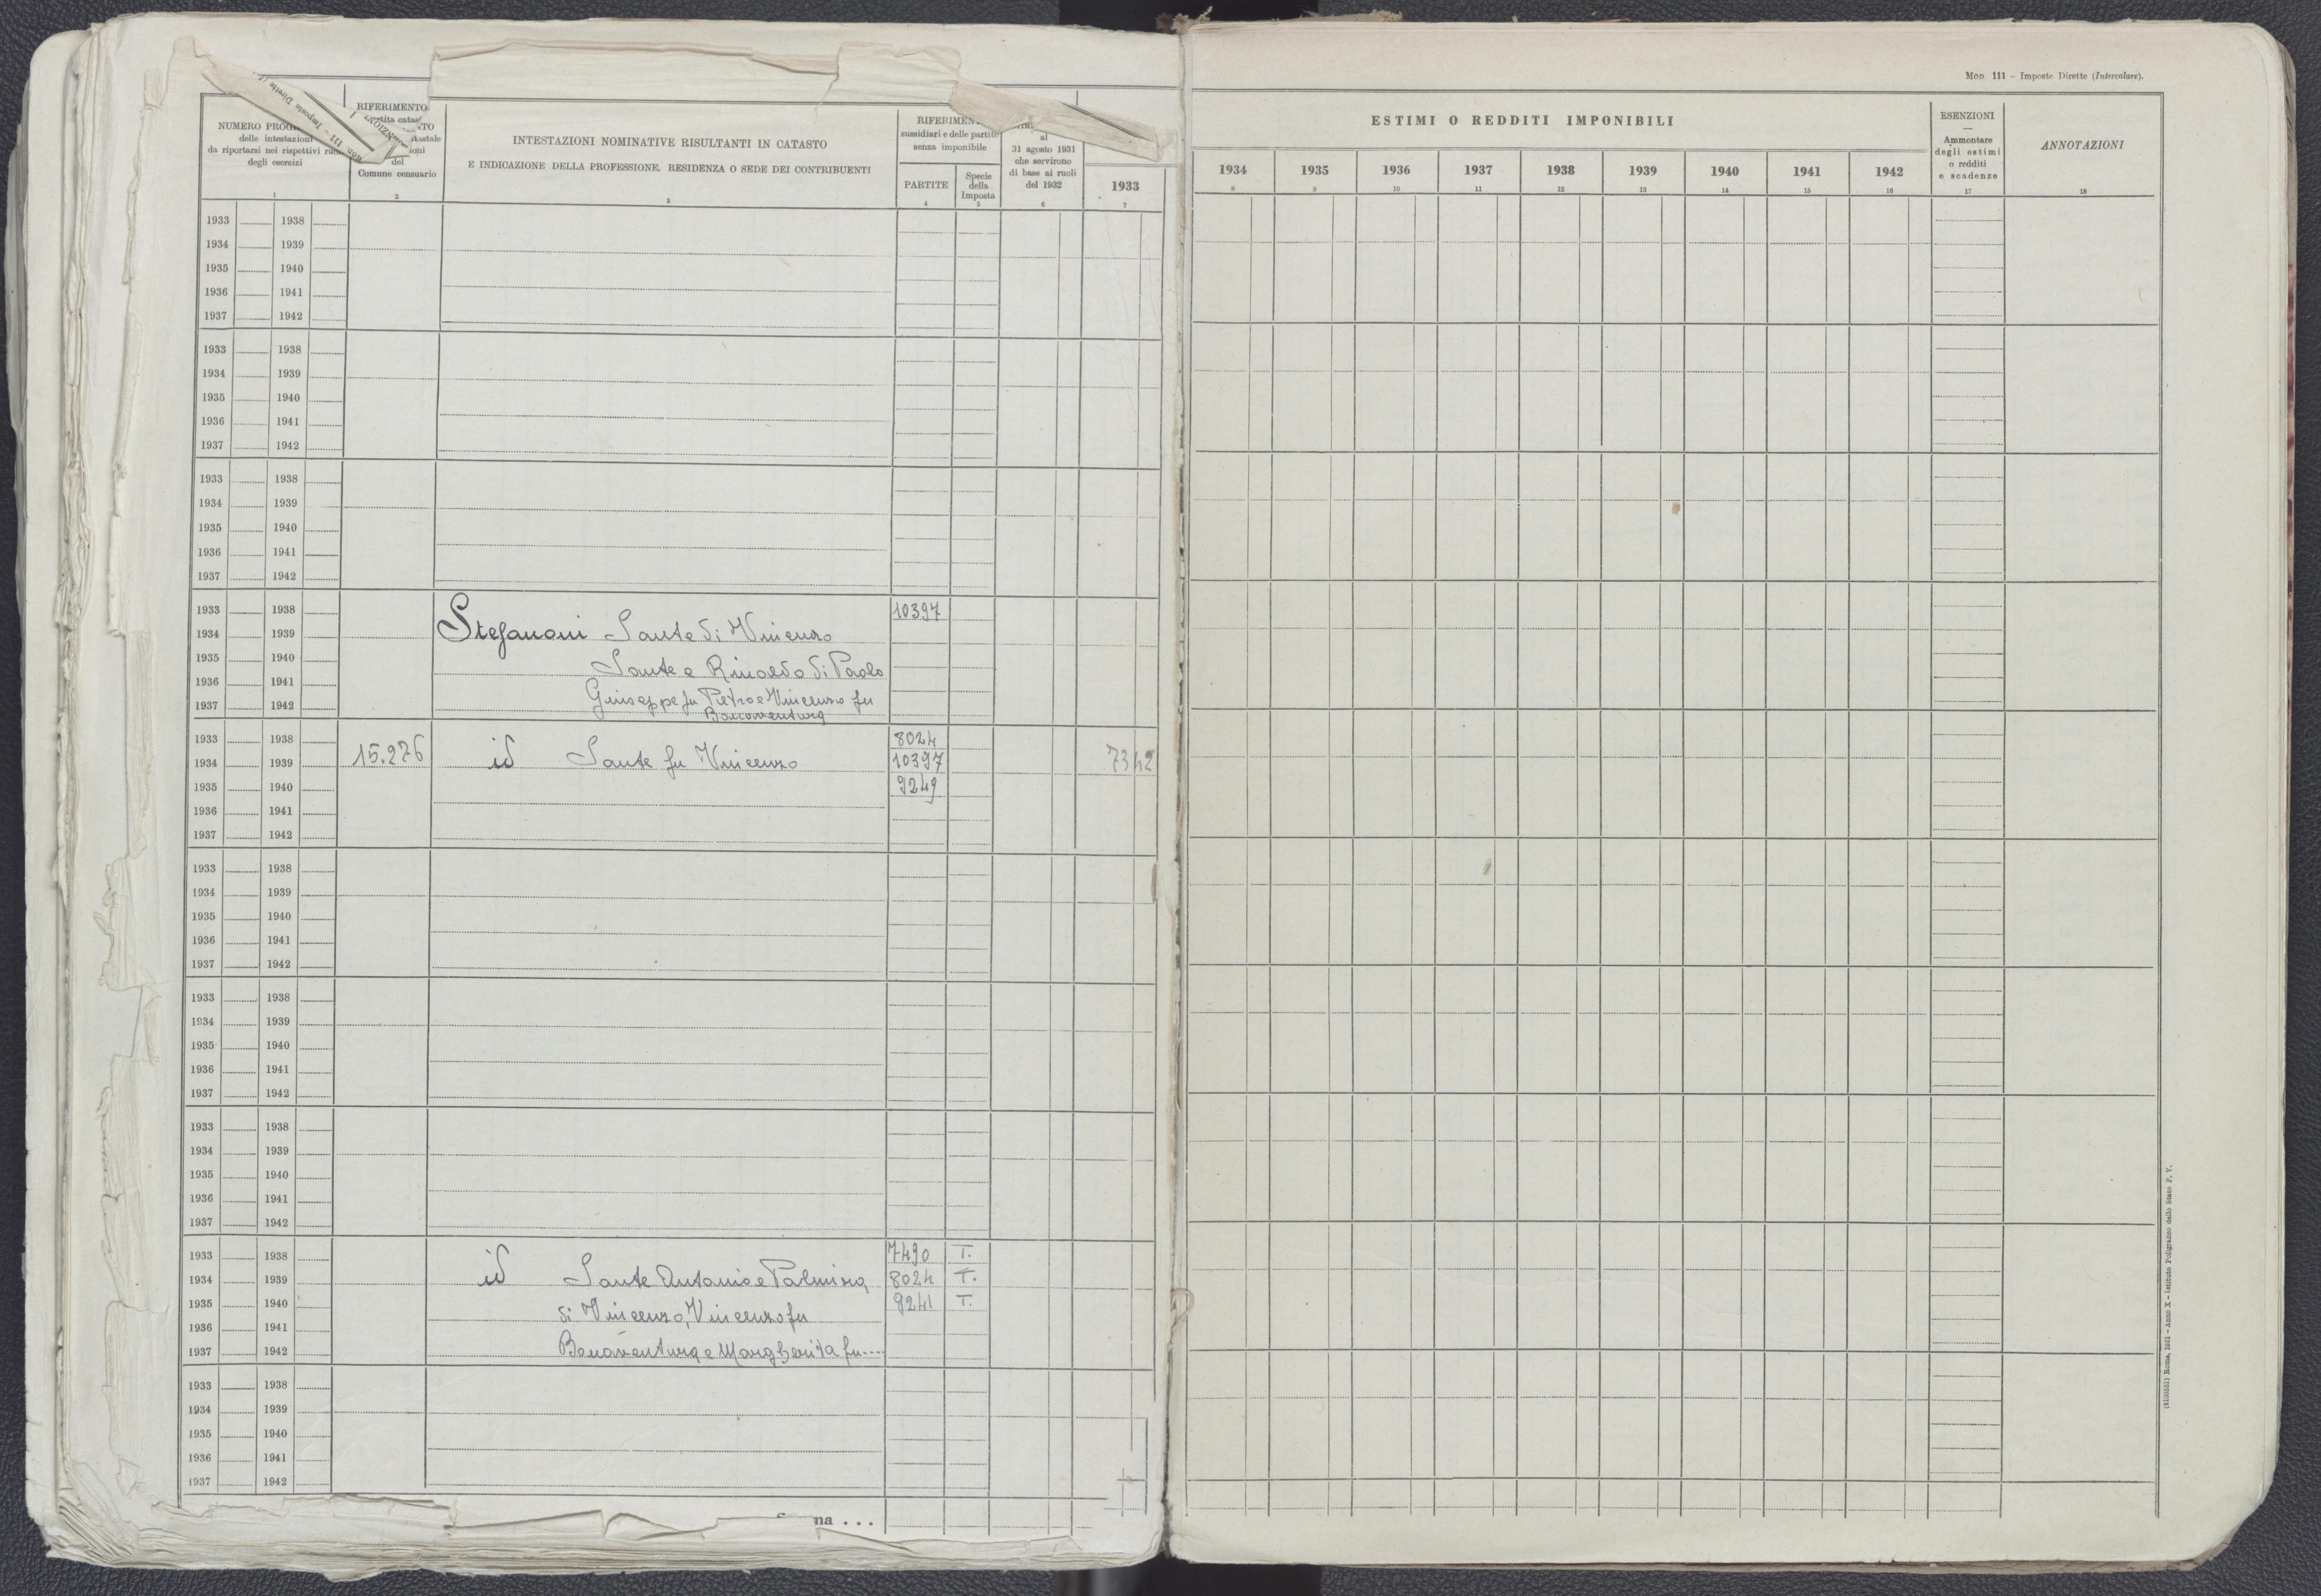 Mod. 111 – Imposte Dirette (Intercalare).
NUMERO
delle intestazioni
da riportarsi nei rispettivi
degli esercizi
1
RIFERIMENTO
del
Comune censuario
2
INTESTAZIONI NOMINATIVE RISULTANTI IN CATASTO
E INDICAZIONE DELLA PROFESSIONE, RESIDENZA O SEDE DEI CONTRIBUENTI
3
sussidiari e delle partite
senza imponibile
PARTITE
4
Specie
della
Imposta
5
al
31 agosto 1931
che servirono
di base ai ruoli
del 1932
6
1933
7
ESTIMI O REDDITI IMPONIBILI
1934 1935 1936 1937 1938 1939 1940 1941 1942
8 9 10 11 12 13 14 15 16
ESENZIONI
—
Ammontare
degli estimi
o redditi
e scadenze
17
ANNOTAZIONI
18
1933 1938
1934 1939
1935 1940
1936 1941
1937 1942
1933 1938
1934 1939
1935 1940
1936 1941
1937 1942
1933 1938
1934 1939
1935 1940
1936 1941
1937 1942
1933 1938 10397
1934 1939 Stefanoni Sante di Vincenzo
1935 1940 Sante e Rinaldo di Paolo
1936 1941 Giuseppe fu Pietro e Vincenzo fu
1937 1942 Bonaventura
1933 1938 8024
1934 1939 15.276 id Sante fu Vincenzo 10397 7342
1935 1940 9249
1936 1941
1937 1942
1933 1938
1934 1939
1935 1940
1936 1941
1937 1942
1933 1938
1934 1939
1935 1940
1936 1941
1937 1942
1933 1938
1934 1939
1935 1940
1936 1941
1937 1942
1933 1938 7490 T.
1934 1939 id Sante Antonio e Palmira 8024 T.
1935 1940 di Vincenzo, Vincenzo fu 9241 T.
1936 1941
1937 1942 Bonaventura e Margherita fu....
1933 1938
1934 1939
1935 1940
1936 1941
1937 1942